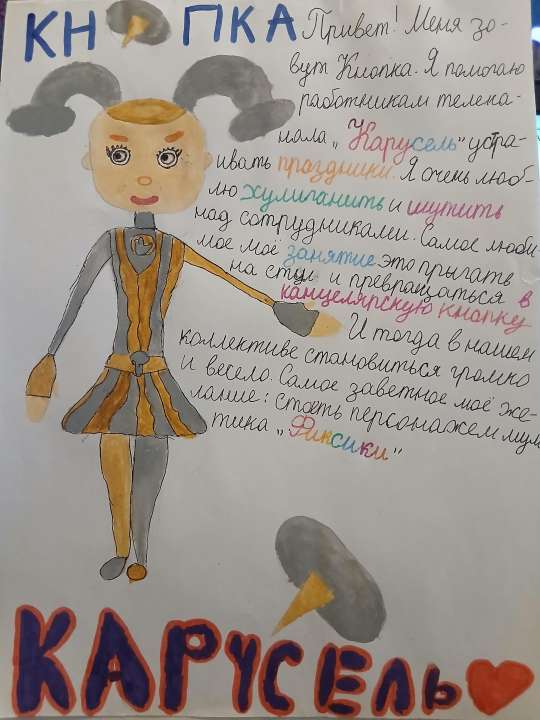 КНОПКА
Привет! Меня зо-
вут Кнопка. Я помогаю
работникам телека-
нала „Карусель" устра-
ивать праздники. Я очень люб-
лю хулиганить и шутить
над сотрудниками. Самое люби
мое моё занятие это прыгать
на стул и превращаться в
канцелярскую кнопку
И тогда в нашем
коллективе становиться громко
и весело. Самое заветное моё же-
лание: стать персонажем муль
тика „Фиксики"
КАРУСЕЛЬ